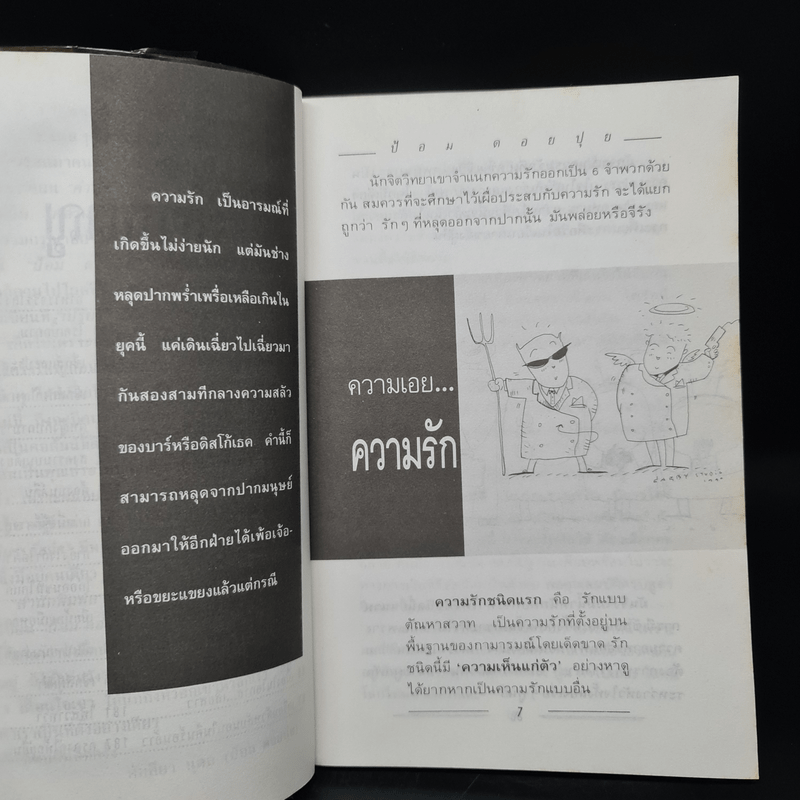 ความรัก เป็นอารมณ์ที่
เกิดขึ้นไม่ง่ายนัก แต่มันช่าง
หลุดปากพร่ำเพรื่อเหลือเกินใน
ยุคนี้ แค่เดินเฉี่ยวไปเฉี่ยวมา
กันสองสามทีกลางความสลัว
ของบาร์หรือดิสโก้เธค คำนี้ก็
สามารถหลุดจากปากมนุษย์
ออกมาให้อีกฝ่ายได้เพ้อเจ้อ-
หรือขยะแขยงแล้วแต่กรณี
ป้อม ตอยปุย
นักจิตวิทยาเขาจำแนกความรักออกเป็น 6 จำพวกด้วย
กัน สมควรที่จะศึกษาไว้เผื่อประสบกับความรัก จะได้แยก
ถูกว่า รักๆ ที่หลุดออกจากปากนั้น มันพล่อยหรือจีรัง
ความเอย...
ความรัก
ความรักชนิดแรก คือ รักแบบ
ตัณหาสวาท เป็นความรักที่ตั้งอยู่บน
พื้นฐานของกามารมณ์โดยเด็ดขาด รัก
ชนิดนี้มี 'ความเห็นแก่ตัว' อย่างหาดู
ได้ยากหากเป็นความรักแบบอื่น
7